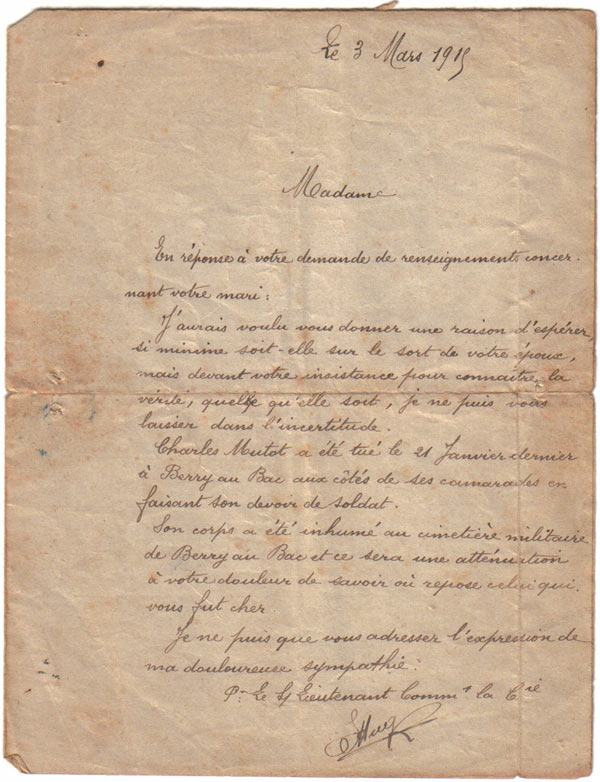 Le 3 Mars 1915
Madame
En réponse à votre demande de renseignements concer-
nant votre mari :
J'aurais voulu vous donner une raison d'espérer,
si minime soit-elle sur le sort de votre époux,
mais devant votre insistance pour connaître la
vérité, quelle qu'elle soit, je ne puis vous
laisser dans l'incertitude.
Charles Mutot a été tué le 21 Janvier dernier
à Berry au Bac aux côtés de ses camarades en
faisant son devoir de soldat.
Son corps a été inhumé au cimetière militaire
de Berry au Bac et ce sera une atténuation
à votre douleur de savoir où repose celui qui
vous fut cher.
Je ne puis que vous adresser l'expression de
ma douloureuse sympathie.
Pr Le S/ Lieutenant Commt la Cie